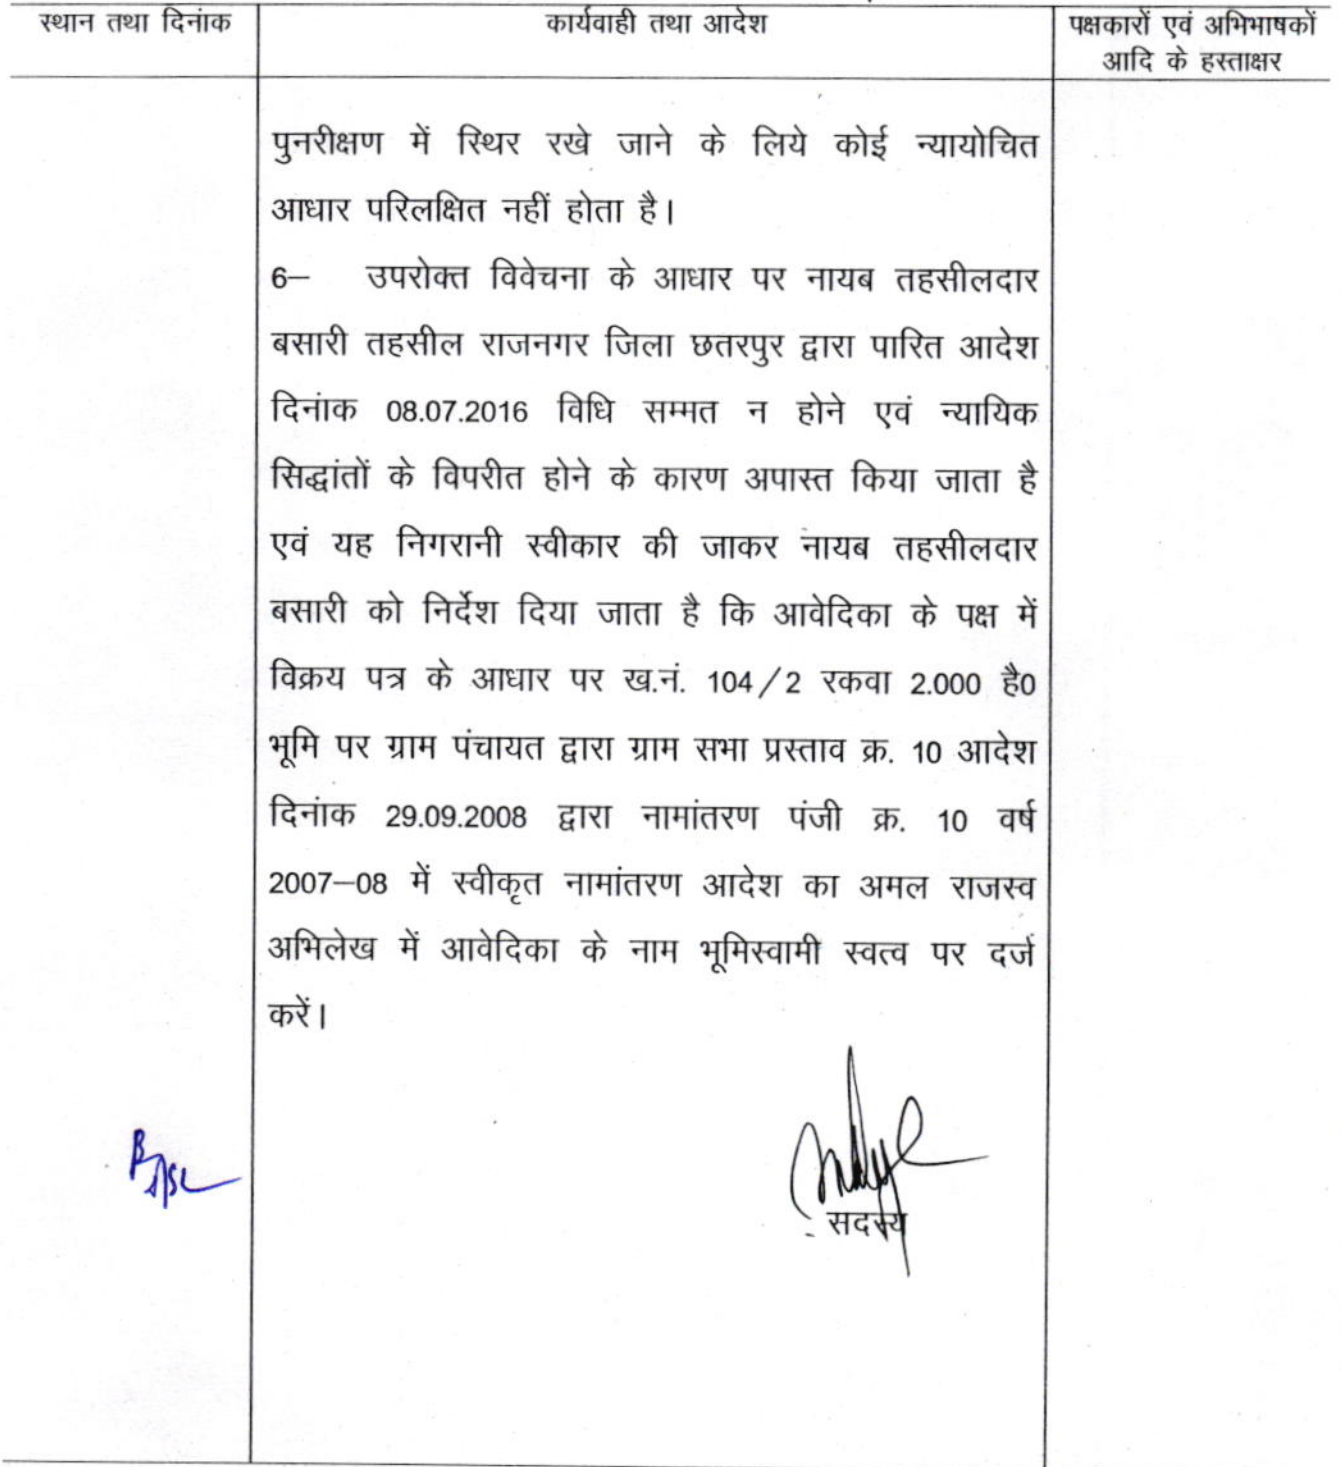 स्थान तथा दिनांक
कार्यवाही तथा आदेश
पक्षकारों एवं अभिभाषकों
आदि के हस्ताक्षर
पुनरीक्षण में स्थिर रखे जाने के लिये कोई न्यायोचित
आधार परिलक्षित नहीं होता है।
6– उपरोक्त विवेचना के आधार पर नायब तहसीलदार
बसारी तहसील राजनगर जिला छतरपुर द्वारा पारित आदेश
दिनांक 08.07.2016 विधि सम्मत न होने एवं न्यायिक
सिद्धांतों के विपरीत होने के कारण अपास्त किया जाता है
एवं यह निगरानी स्वीकार की जाकर नायब तहसीलदार
बसारी को निर्देश दिया जाता है कि आवेदिका के पक्ष में
विक्रय पत्र के आधार पर ख.नं. 104/2 रकवा 2.000 है0
भूमि पर ग्राम पंचायत द्वारा ग्राम सभा प्रस्ताव क्र. 10 आदेश
दिनांक 29.09.2008 द्वारा नामांतरण पंजी क्र. 10 वर्ष
2007–08 में स्वीकृत नामांतरण आदेश का अमल राजस्व
अभिलेख में आवेदिका के नाम भूमिस्वामी स्वत्व पर दर्ज
करें।
सदस्य